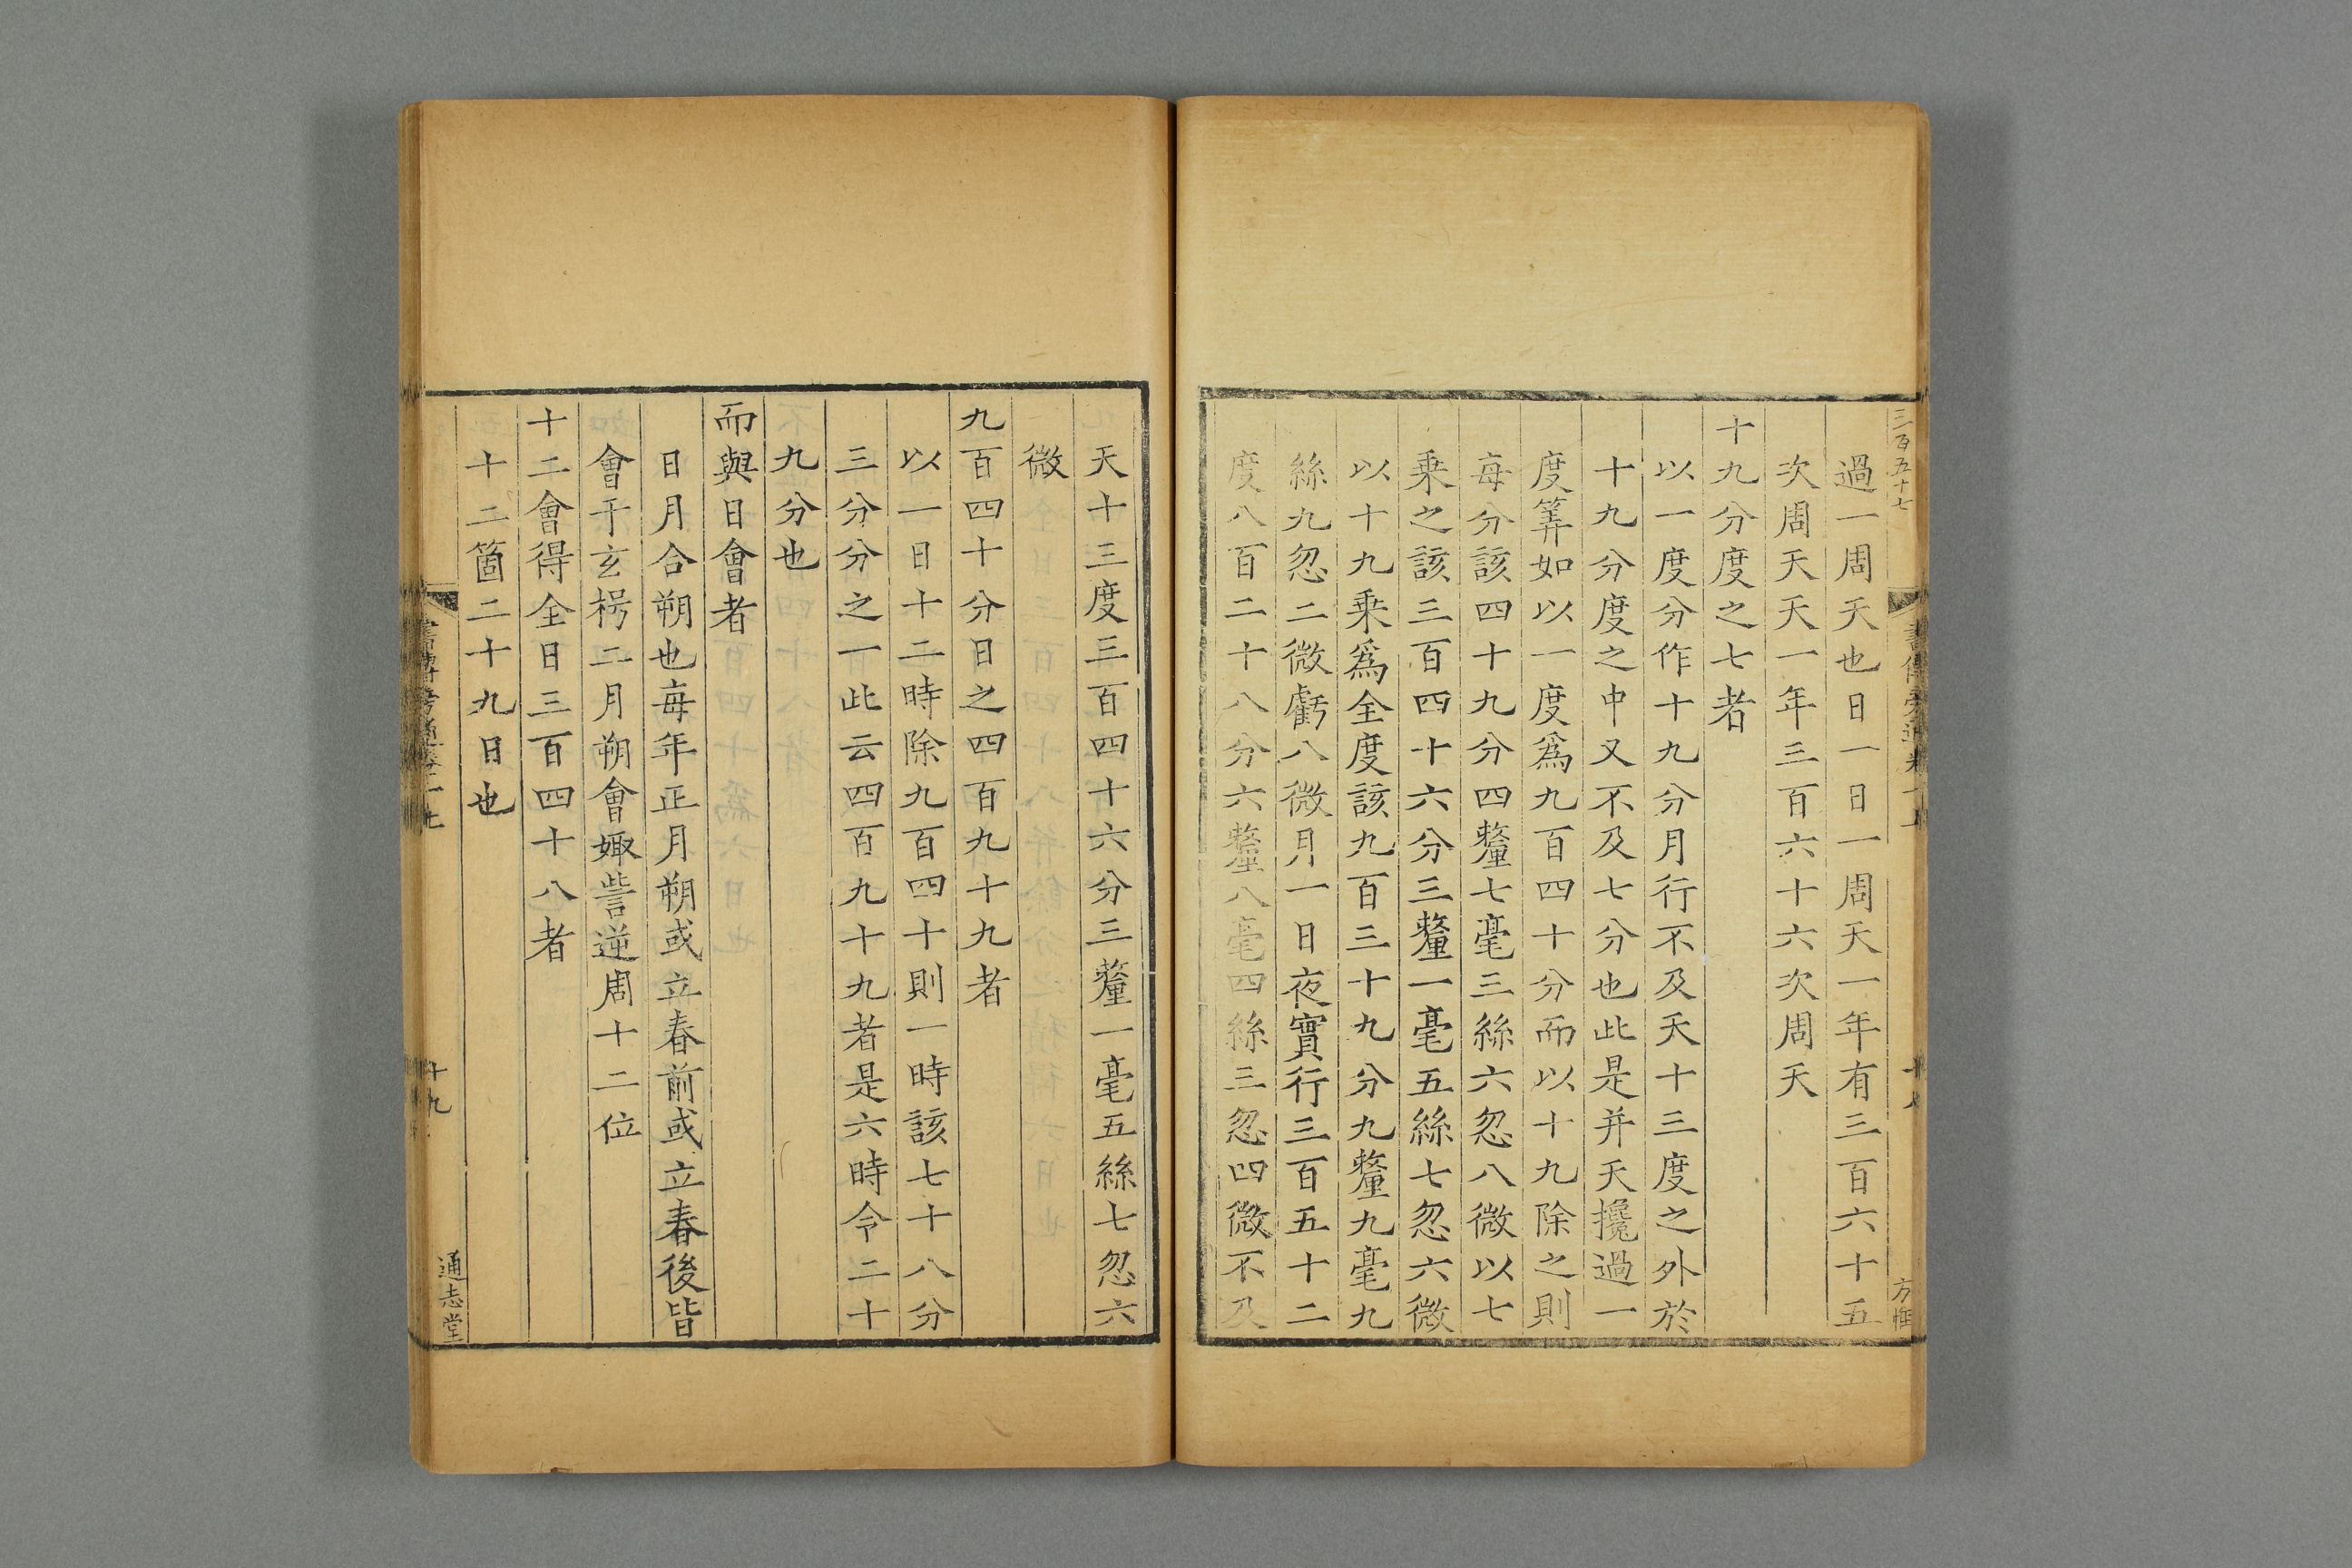 三百五十七
方惟
過一周天也日一日一周天一年有三百六十五
次周天天一年三百六十六次周天
十九分度之七者
以一度分作十九分月行不及天十三度之外於
十九分度之中又不及七分也此是并天攙過一
度筭如以一度爲九百四十分而以十九除之則
每分該四十九分四釐七毫三絲六忽八微以七
乗之該三百四十六分三釐一毫五絲七忽六微
以十九乗爲全度該九百三十九分九釐九毫九
絲九忽二微虧八微月一日夜實行三百五十二
度八百二十八分六釐八毫四絲三忽四微不及
天十三度三百四十六分三釐一毫五絲七忽六
微
九百四十分日之四百九十九者
以一日十二時除九百四十則一時該七十八分
三分分之一此云四百九十九者是六時令二十
九分也
而與日會者
日月合朔也每年正月朔或立春前或立春後皆
會于玄枵二月朔會娵訾逆周十二位
十二會得全日三百四十八者
十二箇二十九日也
十九
通志堂